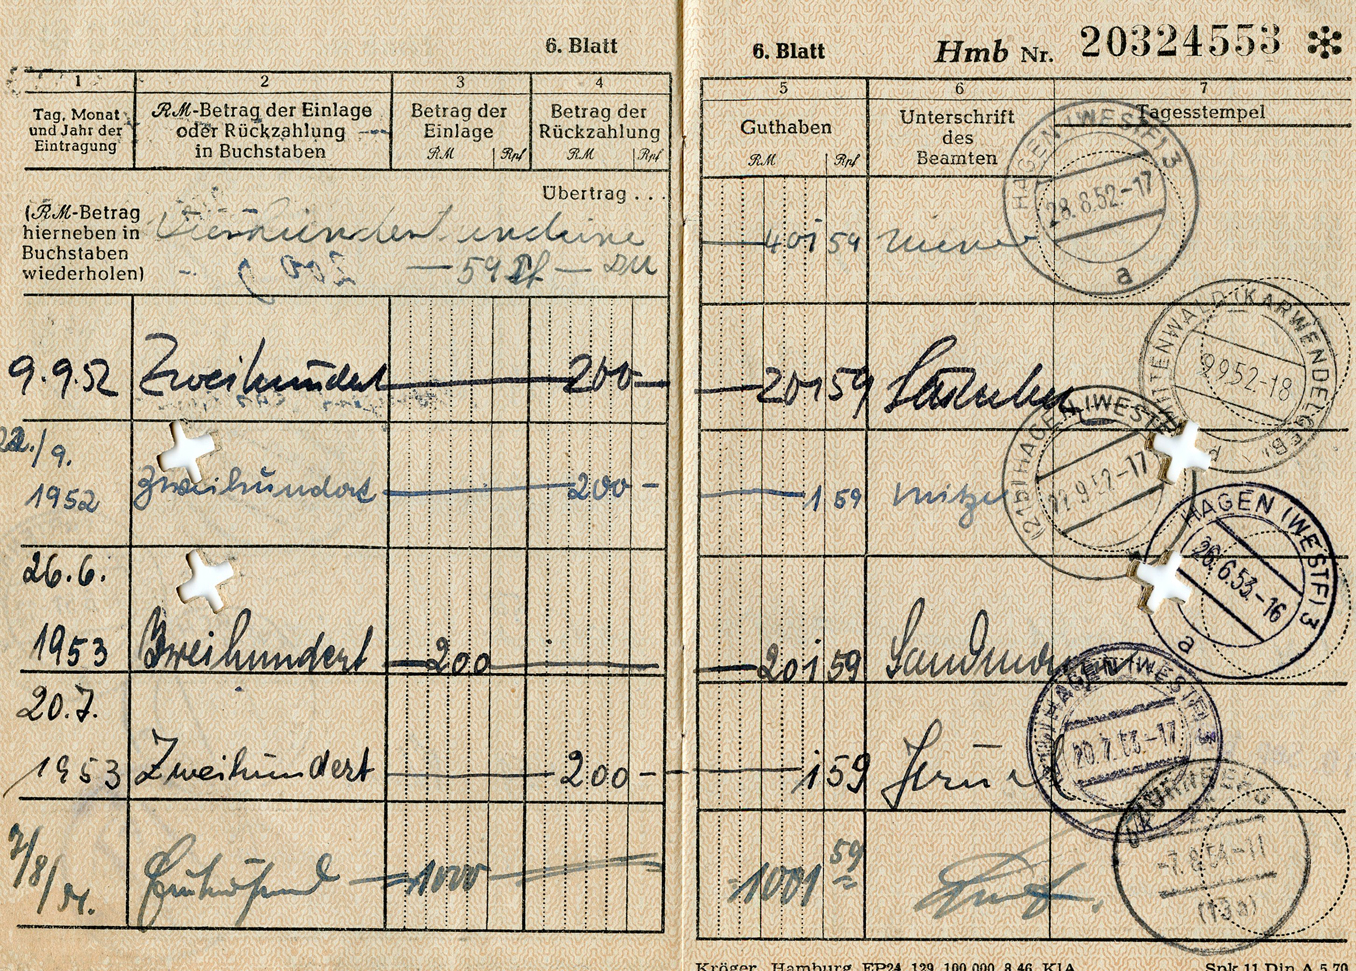 6. Blatt
1
2
3
4
Tag, Monat
und Jahr der
Eintragung
RM-Betrag der Einlage
oder Rückzahlung
in Buchstaben
Betrag der
Einlage
RM Rpf
Betrag der
Rückzahlung
RM Rpf
Übertrag . . .
(RM-Betrag
hierneben in
Buchstaben
wiederholen)
Vierhundert undeine
— 59 Pf — DM
9.9.52 Zweihundert — 200 —
22./9.
1952 Zweihundert — 200 —
26.6.
1953 Zweihundert — 200 —
20.7.
1953 Zweihundert — 200 —
7/8/54. — 1000 —
6. Blatt
Hmb Nr. 20324553 ✻
5
6
7
Guthaben
RM Rpf
Unterschrift
des
Beamten
Tagesstempel
— 401 59
HAGEN (WESTF) 3
28.8.52.-17
a
— 201 59
MITTENWALD (KARWENDELGEB.)
9.9.52-18
— 1 59
(21b) HAGEN (WESTF)
22.9.52-17
— 201 59
HAGEN (WESTF) 3
26.6.53.-16
a
— 1 59
HAGEN (WESTF) 3
20.7.53.-17
1001 59
NÜRNBERG
-7.8.54-11
(13a)
Kröger, Hamburg, EP24 129 100 000 8.46 KIA
Spk 11 Din A 5 70